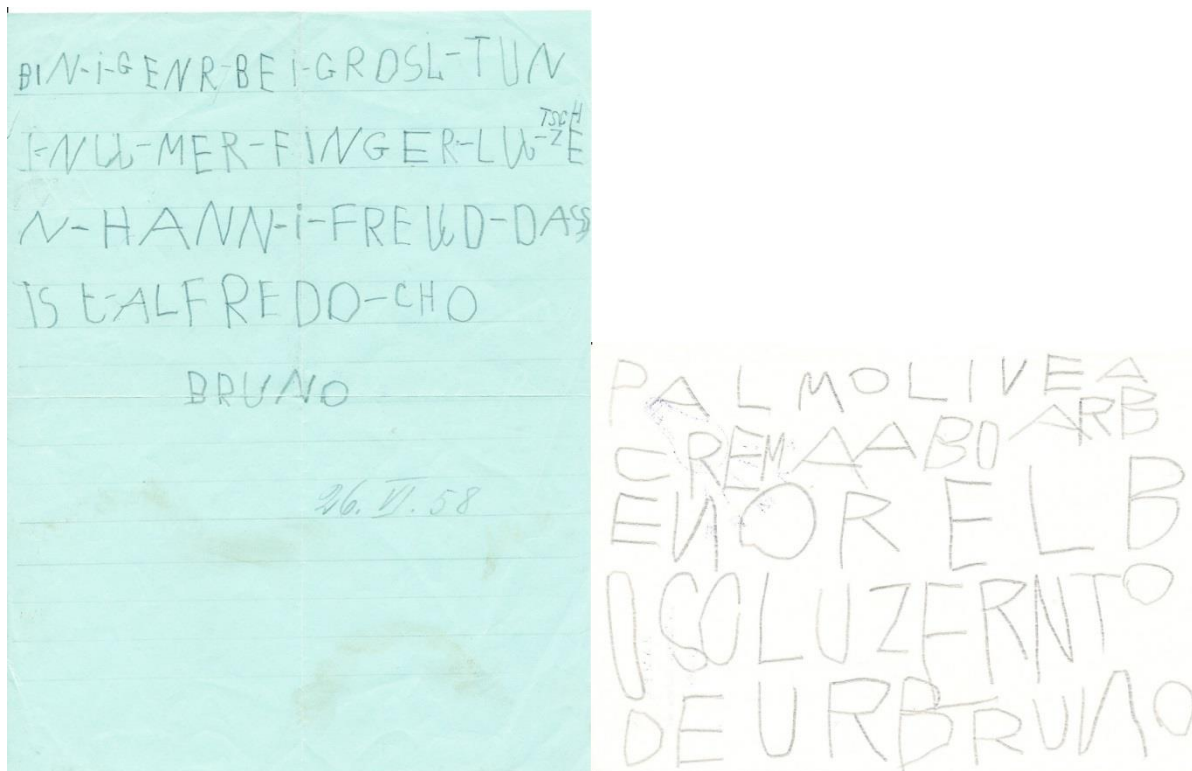 BIN-i-GENR-BEI-GROSL-TUN
I-NUU-MER-FINGER-LUU-TSCHZE
N-HANN-i-FREUUD-DASS
ISt-ALFREDO-CHO
BRUNO
26. VI. 58
PALMOLIVEA
CREMAABO ARB
ENORELB
ISOLUZERNTO
DEURBRUNO